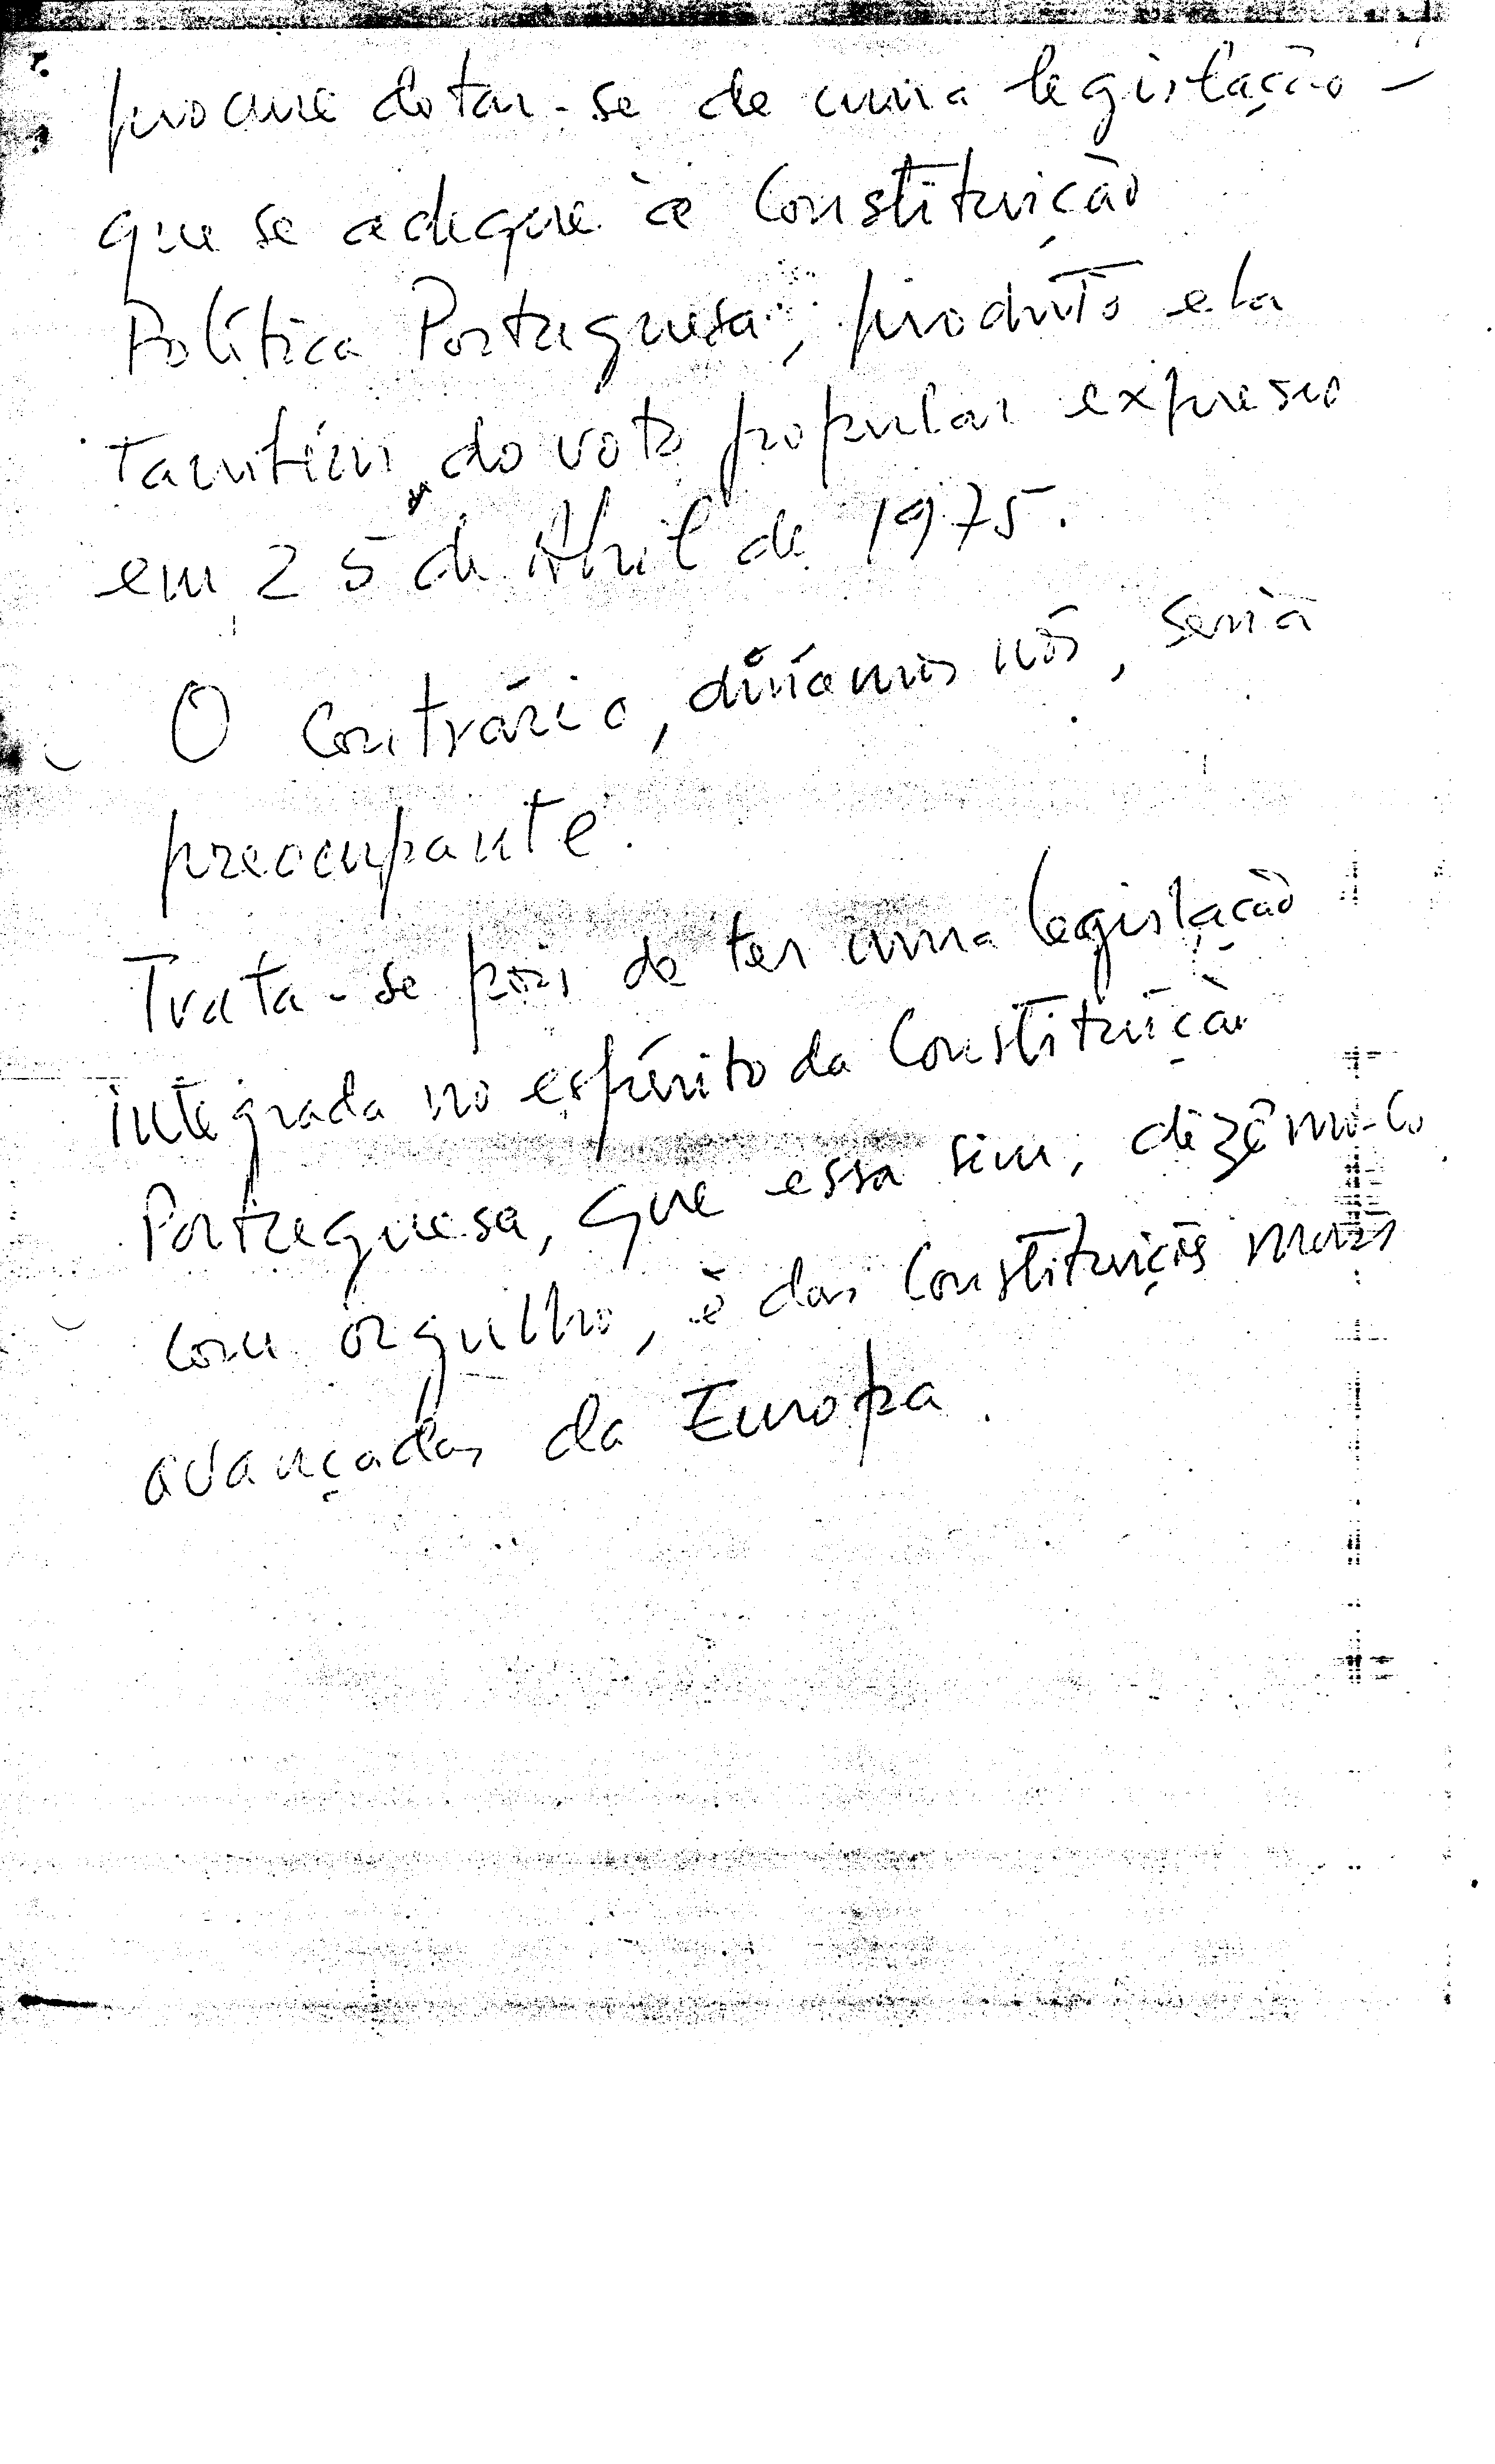 procure dotar-se de uma legislação -
que se adeque à Constituição
Política Portuguesa, produto ela
também do voto popular expresso
em 25 de Abril de 1975.
O contrário, diríamos nós, seria
preocupante.
Trata-se pois de ter uma legislação
integrada no espírito da Constituição
Portuguesa, que essa sim, dizêmo-lo
com orgulho, é das Constituições mais
avançadas da Europa.